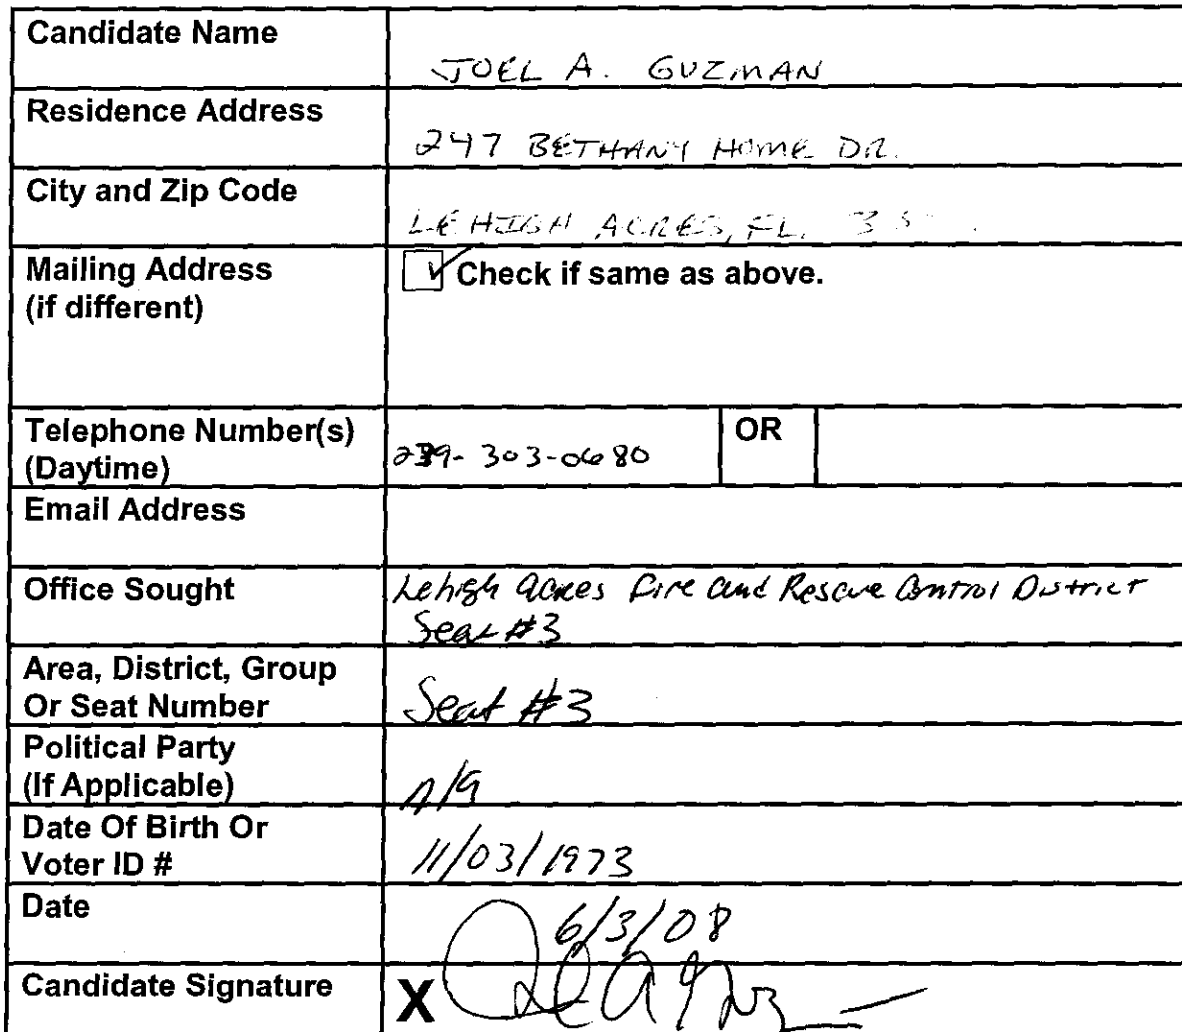 Candidate Name JOEL A. GUZMAN
Residence Address 247 BETHANY HOME DR.
City and Zip Code LEHIGH ACRES, FL.
Mailing Address Check if same as above.
(if different)
Telephone Number(s) OR
(Daytime) 239-303-0680
Email Address
Office Sought Lehigh acres Fire and Rescue Control District
Seat #3
Area, District, Group
Or Seat Number Seat #3
Political Party
(If Applicable) n/a
Date Of Birth Or
Voter ID # 11/03/1973
Date 6/3/08
Candidate Signature X